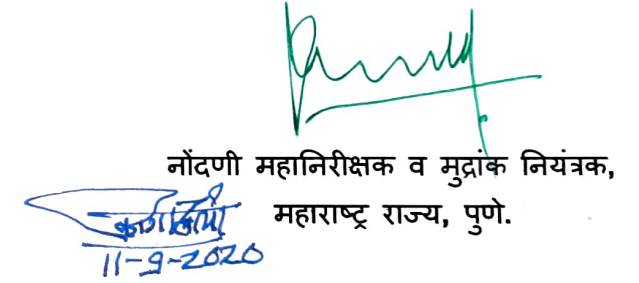 नोंदणी महानिरीक्षक व मुद्रांक नियंत्रक,
महाराष्ट्र राज्य, पुणे.
11-9-2020